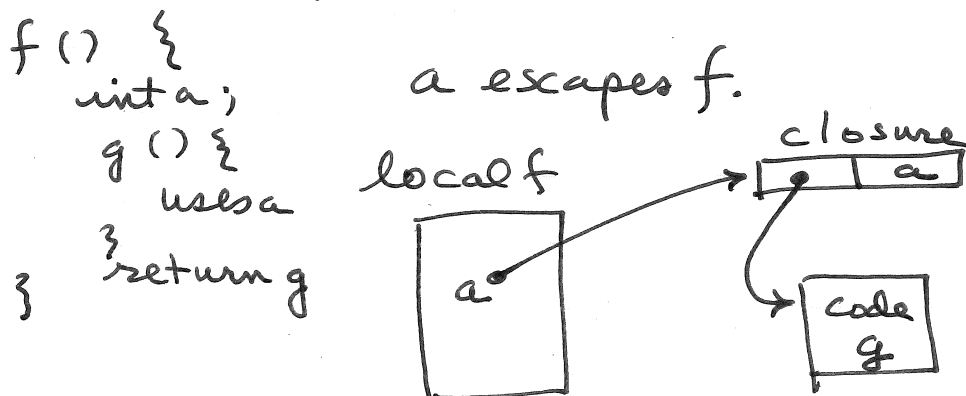 f () {
int a;
g () {
uses a
}
return g
}
a escapes f.
local f
a
closure
a
code
g